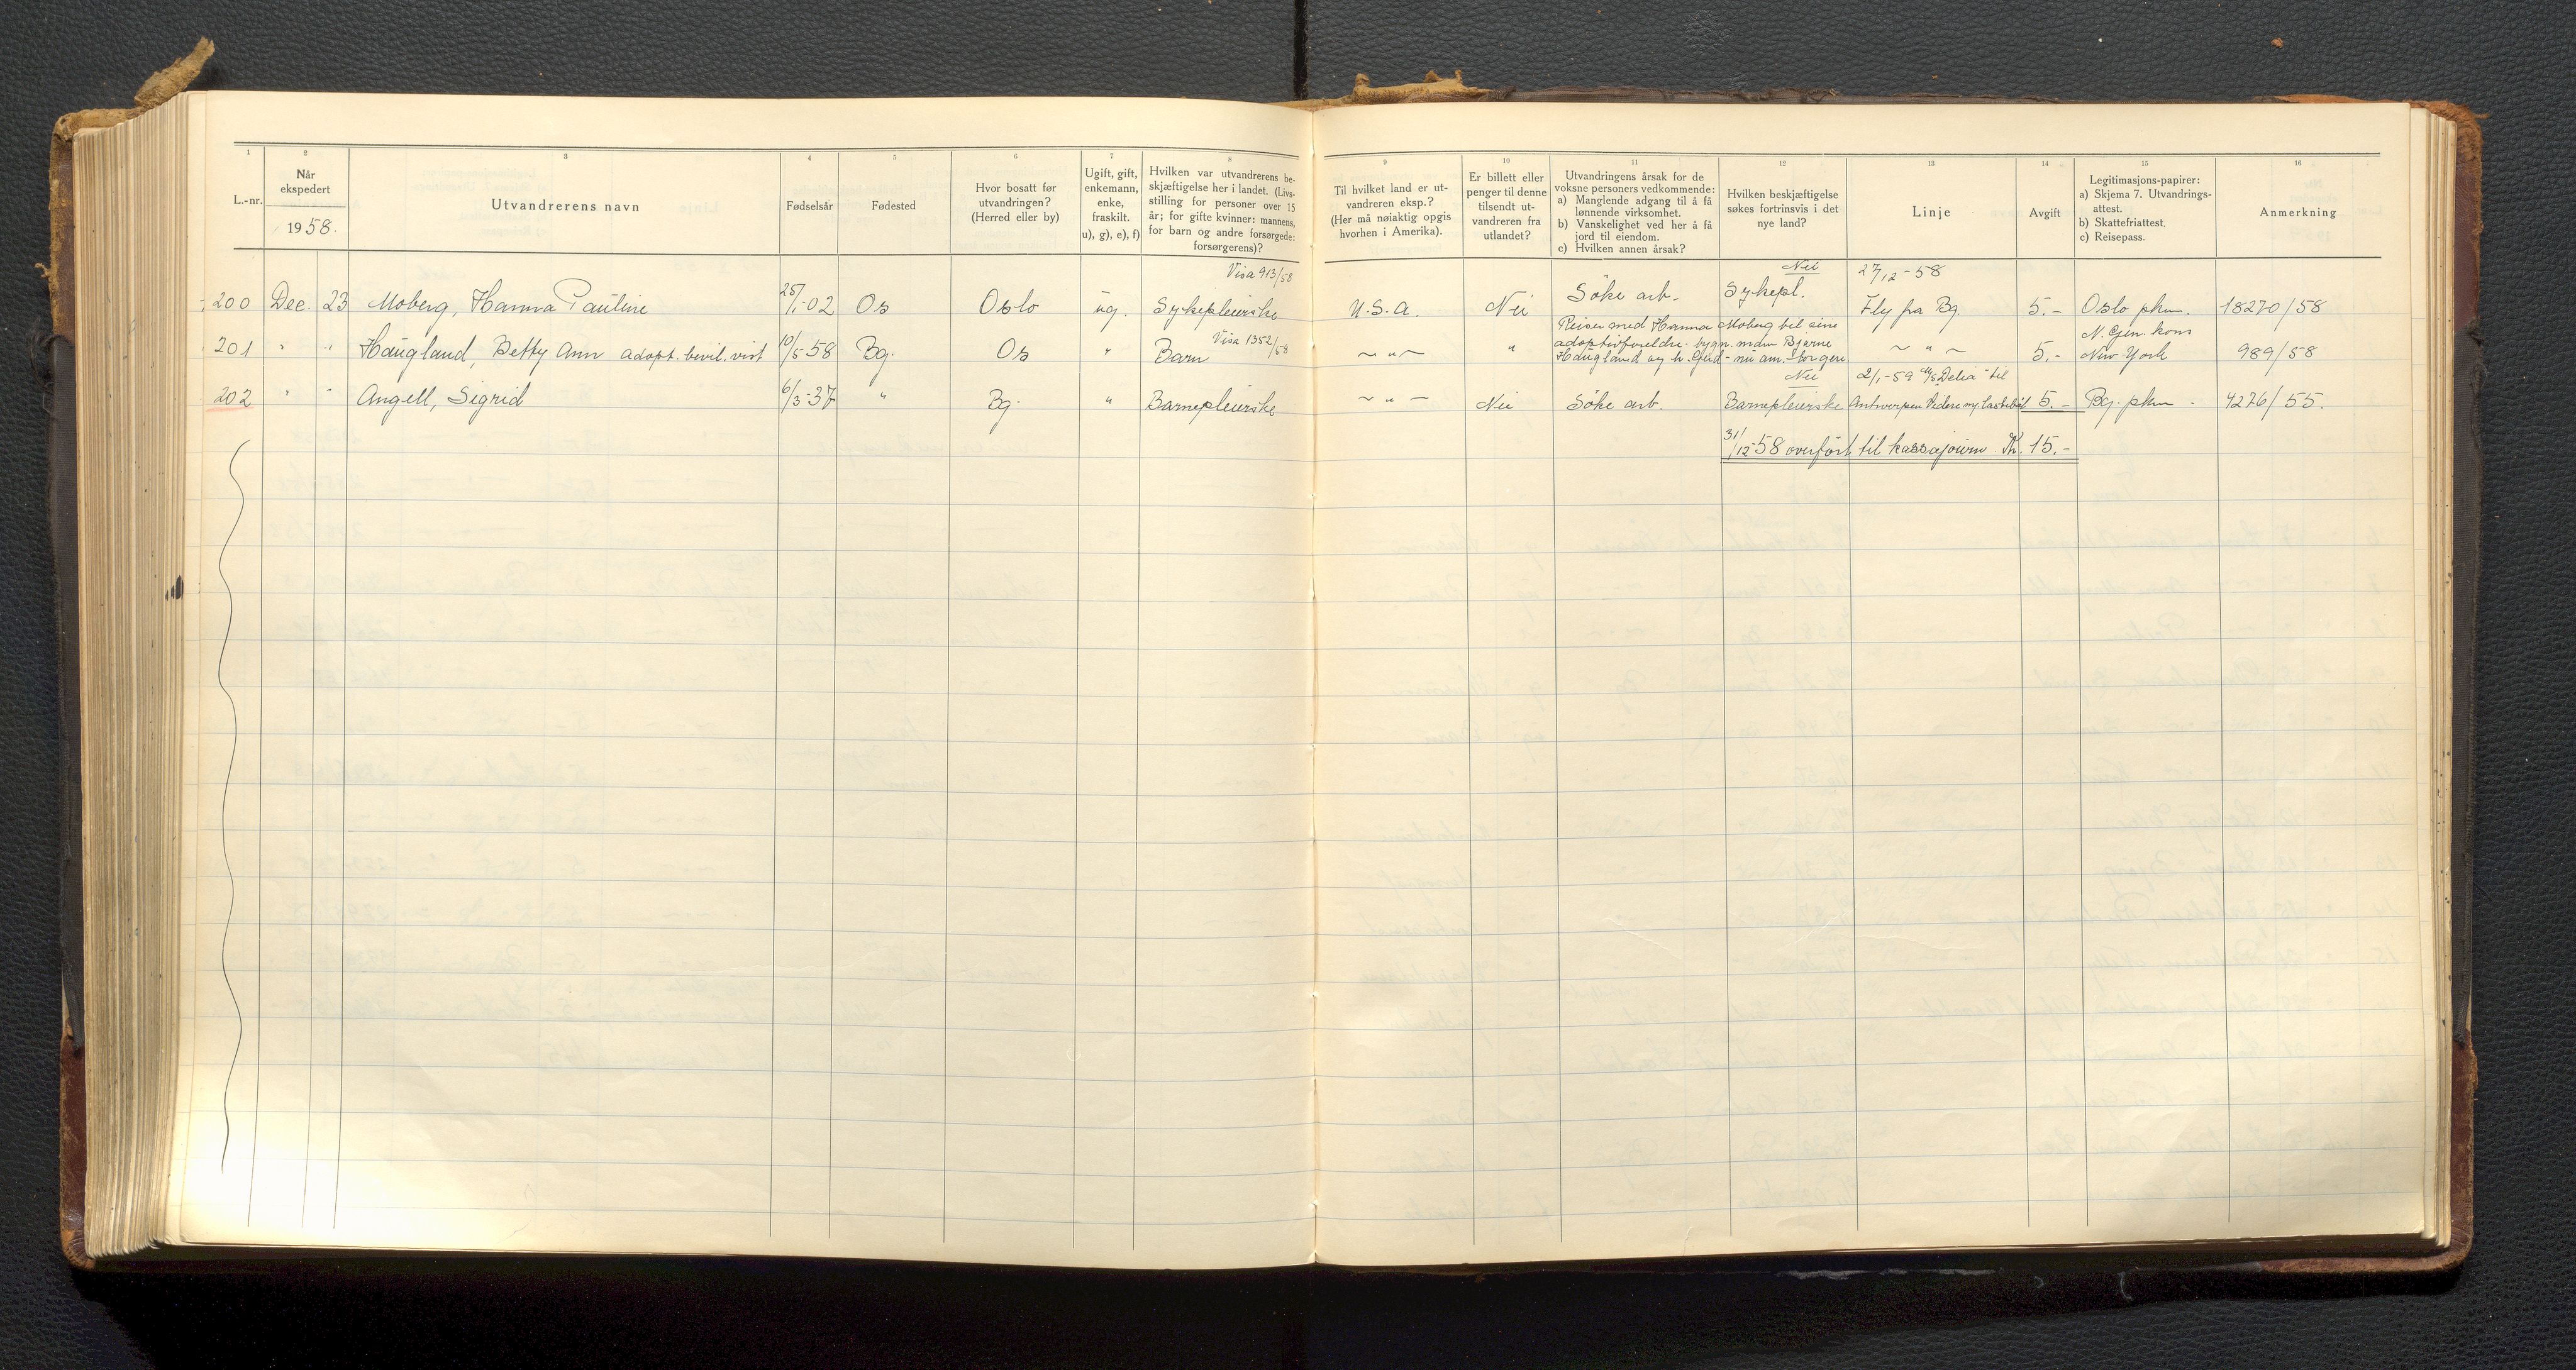 1 2 3 4 5 6 7 8
L.-nr. Når ekspedert 1958. Utvandrerens navn Fødselsår Fødested Hvor bosatt før utvandringen? (Herred eller by) Ugift, gift, enkemann, enke, fraskilt. u), g), e), f) Hvilken var utvandrerens beskjæftigelse her i landet. (Livsstilling for personer over 15 år; for gifte kvinner: mannens, for barn og andre forsørgede: forsørgerens)?
Visa 913/58
200 Dec. 23 Moberg, Hanna Pauline 25/1-02 Os Oslo ug. Sykepleierske
Visa 1352/58
201 " " Haugland, Betty Ann adopt. bevil. vist 10/5-58 Bg. Os " Barn
202 " " Angell, Sigrid 6/3-37 " Bg. " Barnepleierske
9 10 11 12 13 14 15 16
Til hvilket land er utvandreren eksp.? (Her må nøiaktig opgis hvorhen i Amerika).
Er billett eller penger til denne tilsendt utvandreren fra utlandet?
Utvandringens årsak for de voksne personers vedkommende:
a) Manglende adgang til å få lønnende virksomhet.
b) Vanskelighet ved her å få jord til eiendom.
c) Hvilken annen årsak?
Hvilken beskjæftigelse søkes fortrinsvis i det nye land?
Linje
Avgift
Legitimasjons-papirer:
a) Skjema 7. Utvandringsattest.
b) Skattefriattest.
c) Reisepass.
Anmerkning
Nei 27/12-58
U.S.A. Nei Søke arb. Sykepl. Fly fra Bg. 5.- Oslo pkm. 18270/58
Reiser med Hanna Moberg til sine
adoptivforeldre - bygn. mdm Bjarne N. Gen. kons
~ " ~ " Haugland og h. Gud- nu am. borgere ~ " ~ 5.- New York 989/58
Nei 2/1-59 M/S "Delia" til
~ " ~ Nei Søke arb. Barnepleierske Antwerpen Videre m/ lastebåt 5.- Bg. pkm - 4276/55.
31/12-58 overført til kassajourn. Kr. 15.-